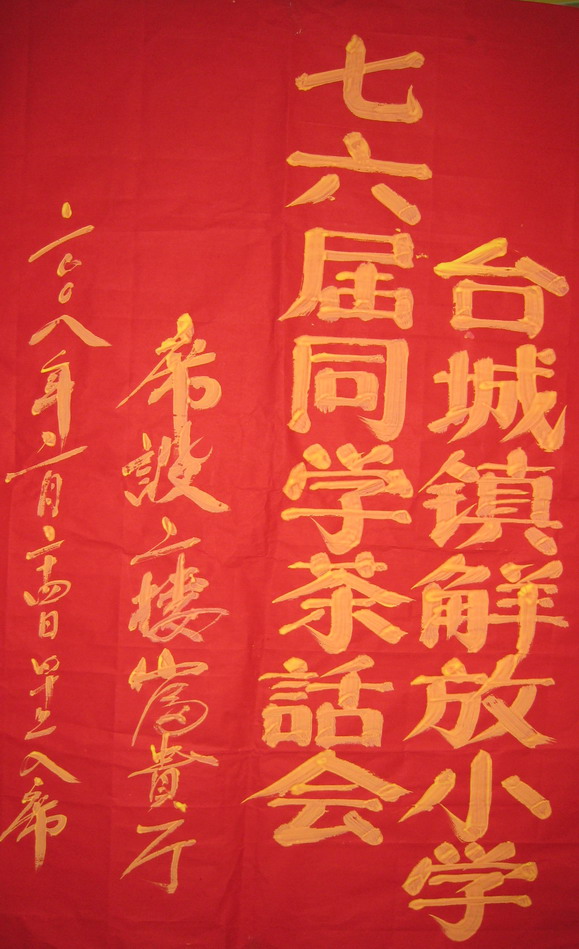 台城镇解放小学
七六届同学茶話会
席設二楼富貴厅
二〇〇八年二月二十四日早上入席